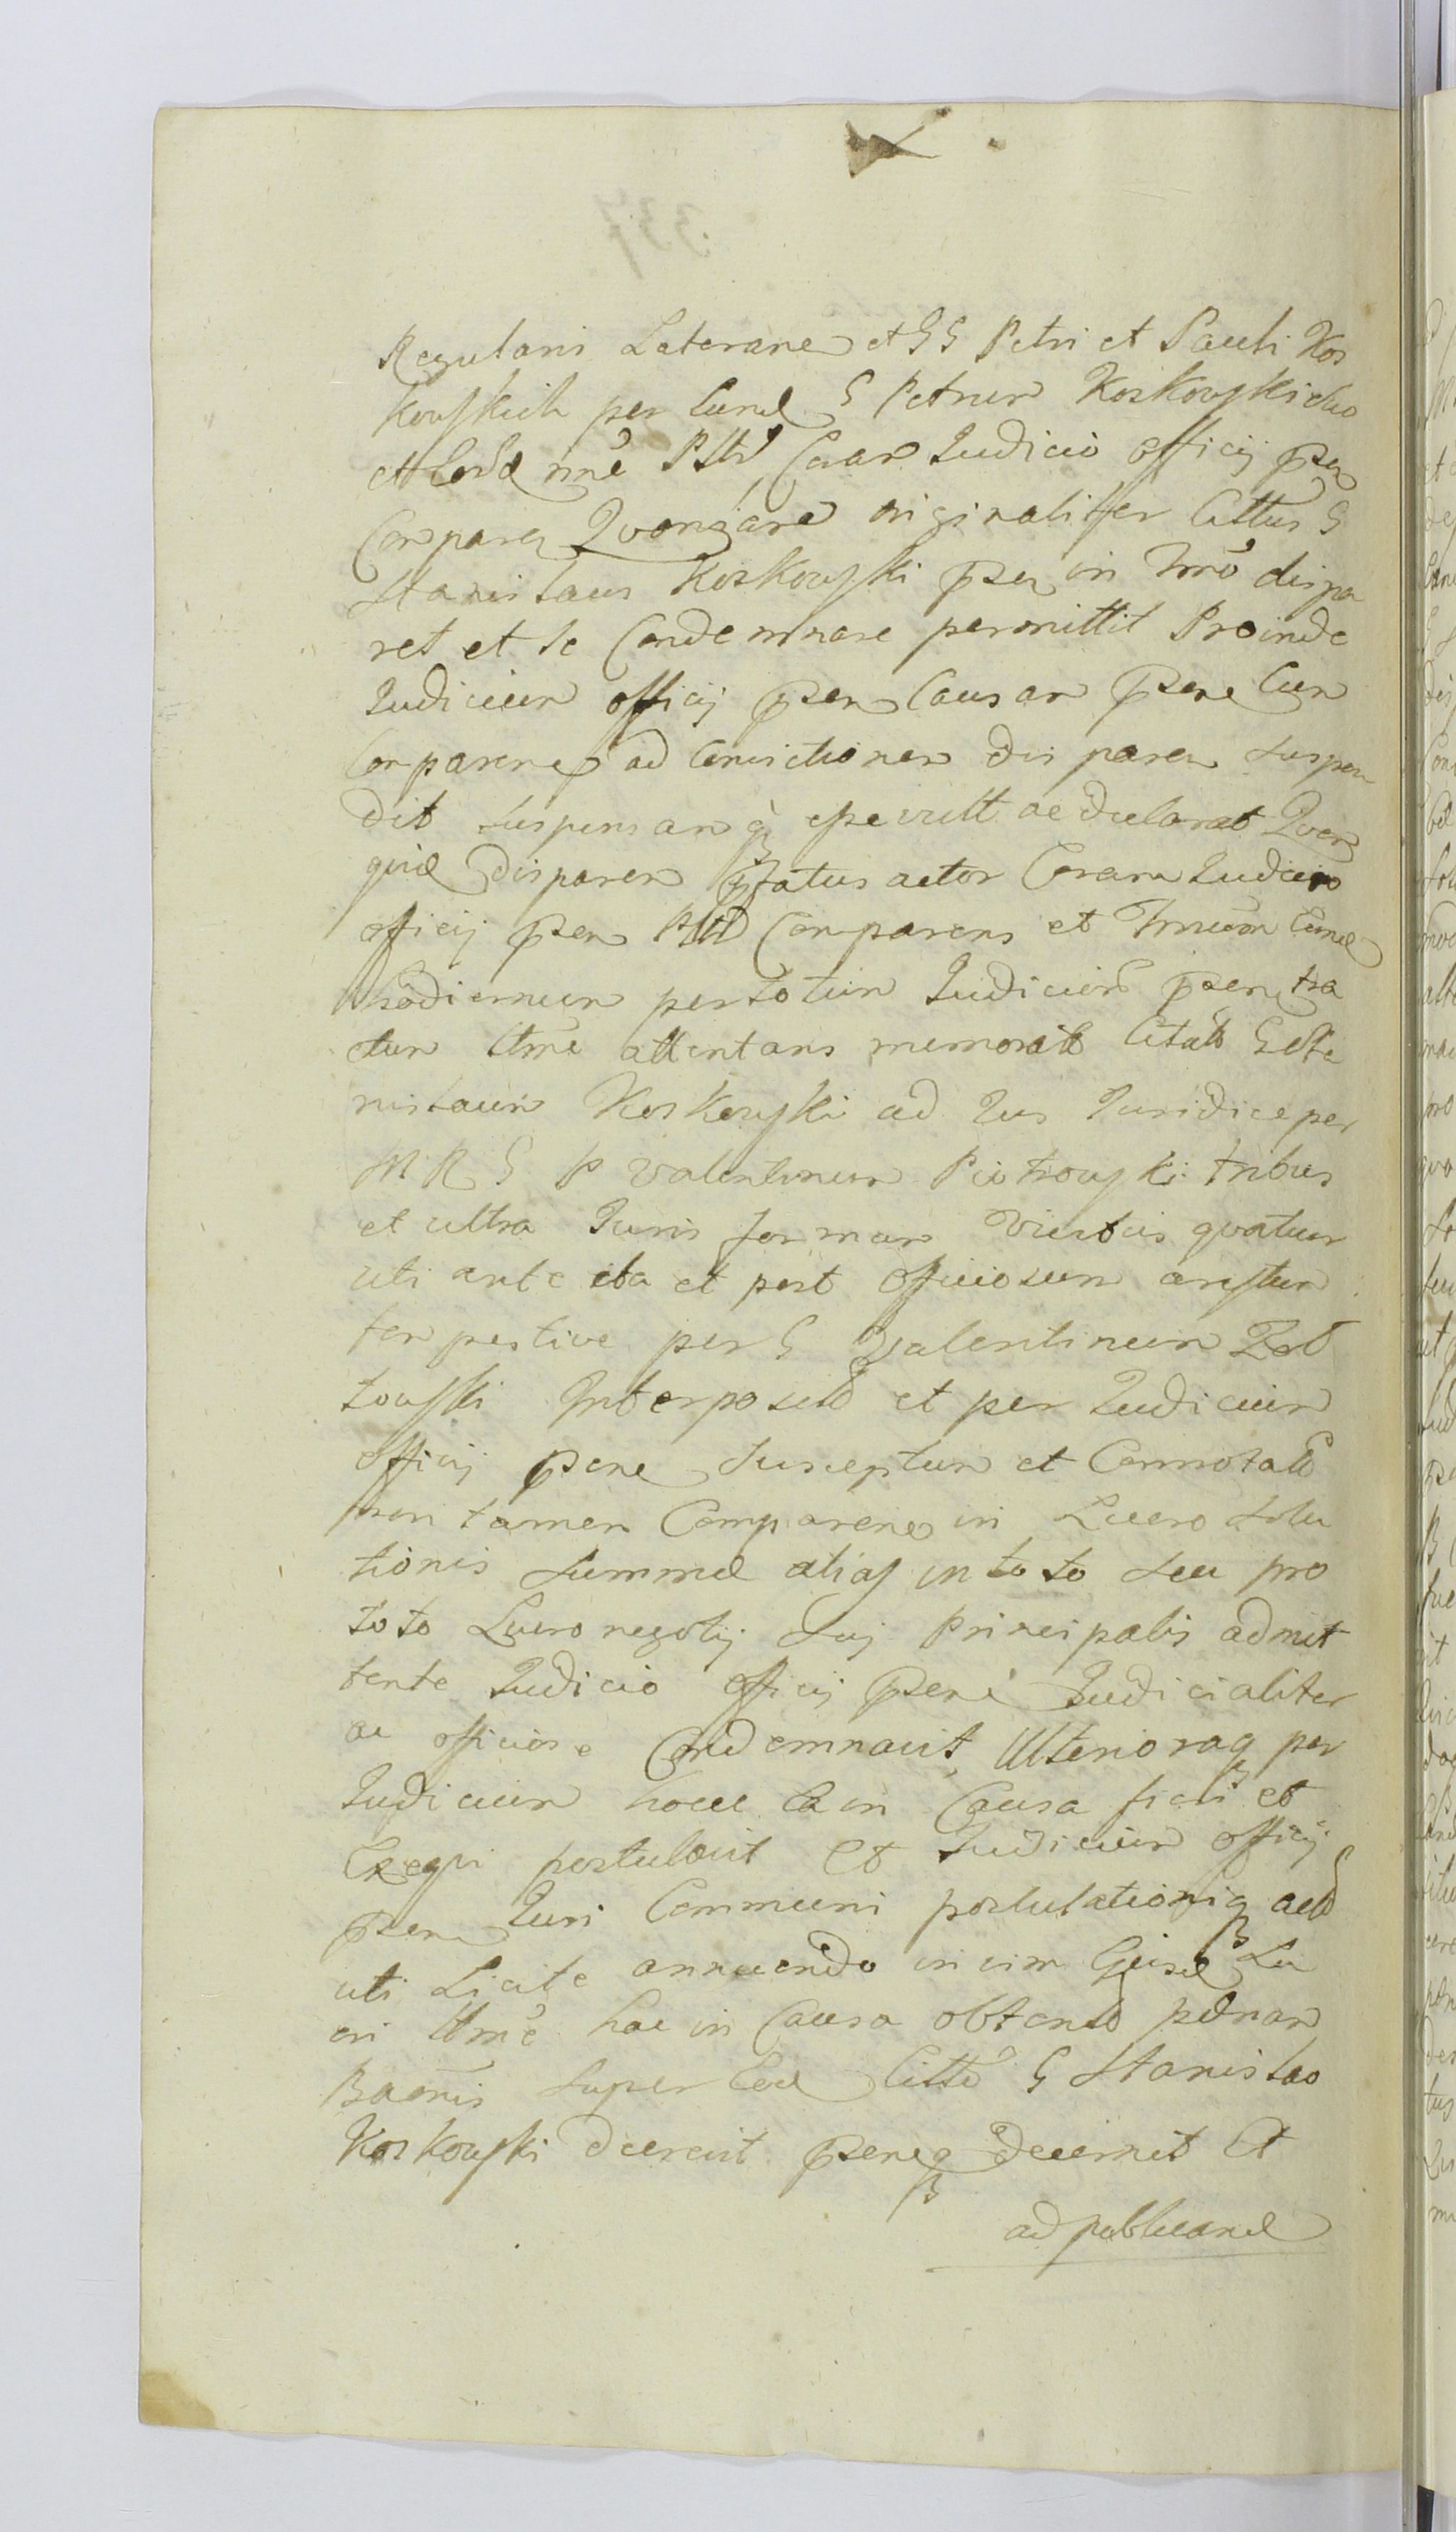 Regularis Laterane et GG Petri et Pauli Kos
kowskich per eund G Petrum Koskowski suo
et eord nne Pltr Coram Judicio officij psen
Comparen Quoniam originaliter Cittus G
Stanislaus Koskowski psen in Tmo dispa
ret et se Condemnare permittit Proinde
Judicium officij psen Causam psen Cum
Comparene ad Convictionem dis paren suspen
dit suspensam q esse vult ac declarat Quem
quid disparen pfatus actor Coram Judicio
officij psen Pltr Comparens et Tmum
hodiernum per totum Judicium psen tra
ctum ltme attentans memorat Citat G Sta
nislaum Koskowski ad Jus Juridice per
M R G P Valentinum Piotrowski tribus
et ultra Juris formam vicibus quatuor
uti ante ita et post officiosum arestum
tempestive per G Valentinum Zol
towski Interposit et per Judicium
officij psene Susceptum et Connotat
non tamen Comparene in Lucro solu
tionis Summe alias in toto seu pro
toto Lucro negotij sui Principalis admit
tente Judicio officij psene Judicialiter
ac officiose Condemnavit Ulterioraq per
Judicium hocce ea in Causa fieri et
Exequi postulavit Et Judicium officij
psen Juri Communi postulationiq act
uti Licite annuendo in vim Lu
cri ltme hac in Causa obtent penam
Banis super eod Citto G Stanislao
Koskowski decrevit pseneq decernit Et
ad publicand